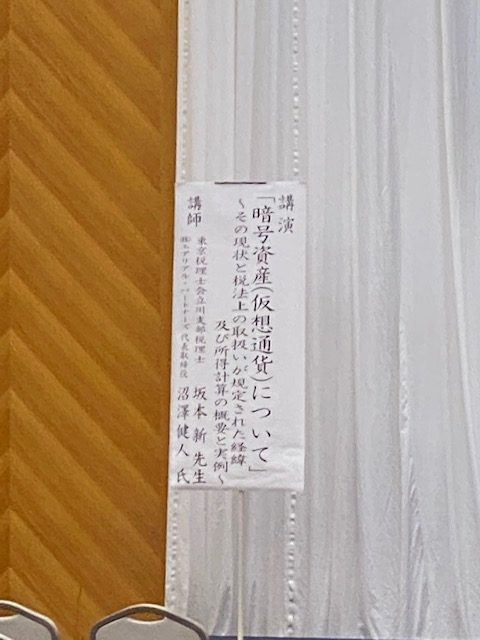 講演
「暗号資産(仮想通貨)について」
~その現状と税法上の取扱いが規定された経緯
及び所得計算の概要と実例~
講師
東京税理士会立川支部税理士 坂本 新 先生
㈱エアリアル・パートナーズ 代表取締役 沼澤健人 氏